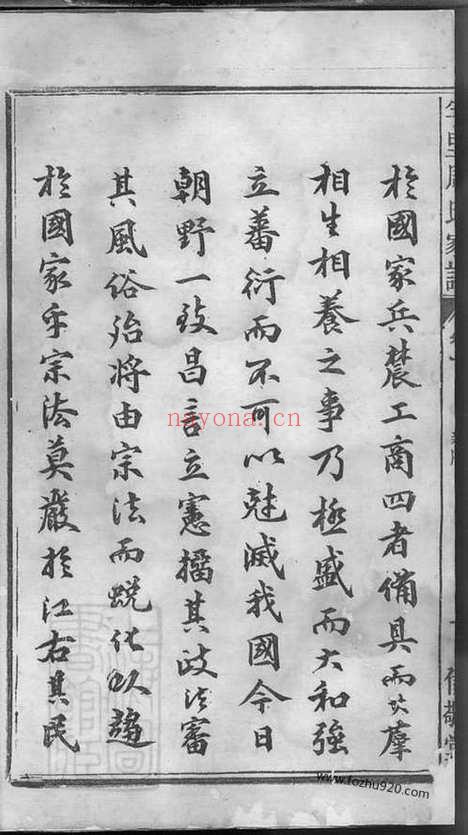 於國家兵農工商四者備具而其羣
相生相養之事乃極盛而大和強
立蕃衍而不可以尅滅我國今日
朝野一致昌言立憲擂其政法審
其風俗殆將由宗法而蛻化以趨
於國家乎宗法莫嚴於江右其民
nayona.cn
www.fozhu920.com